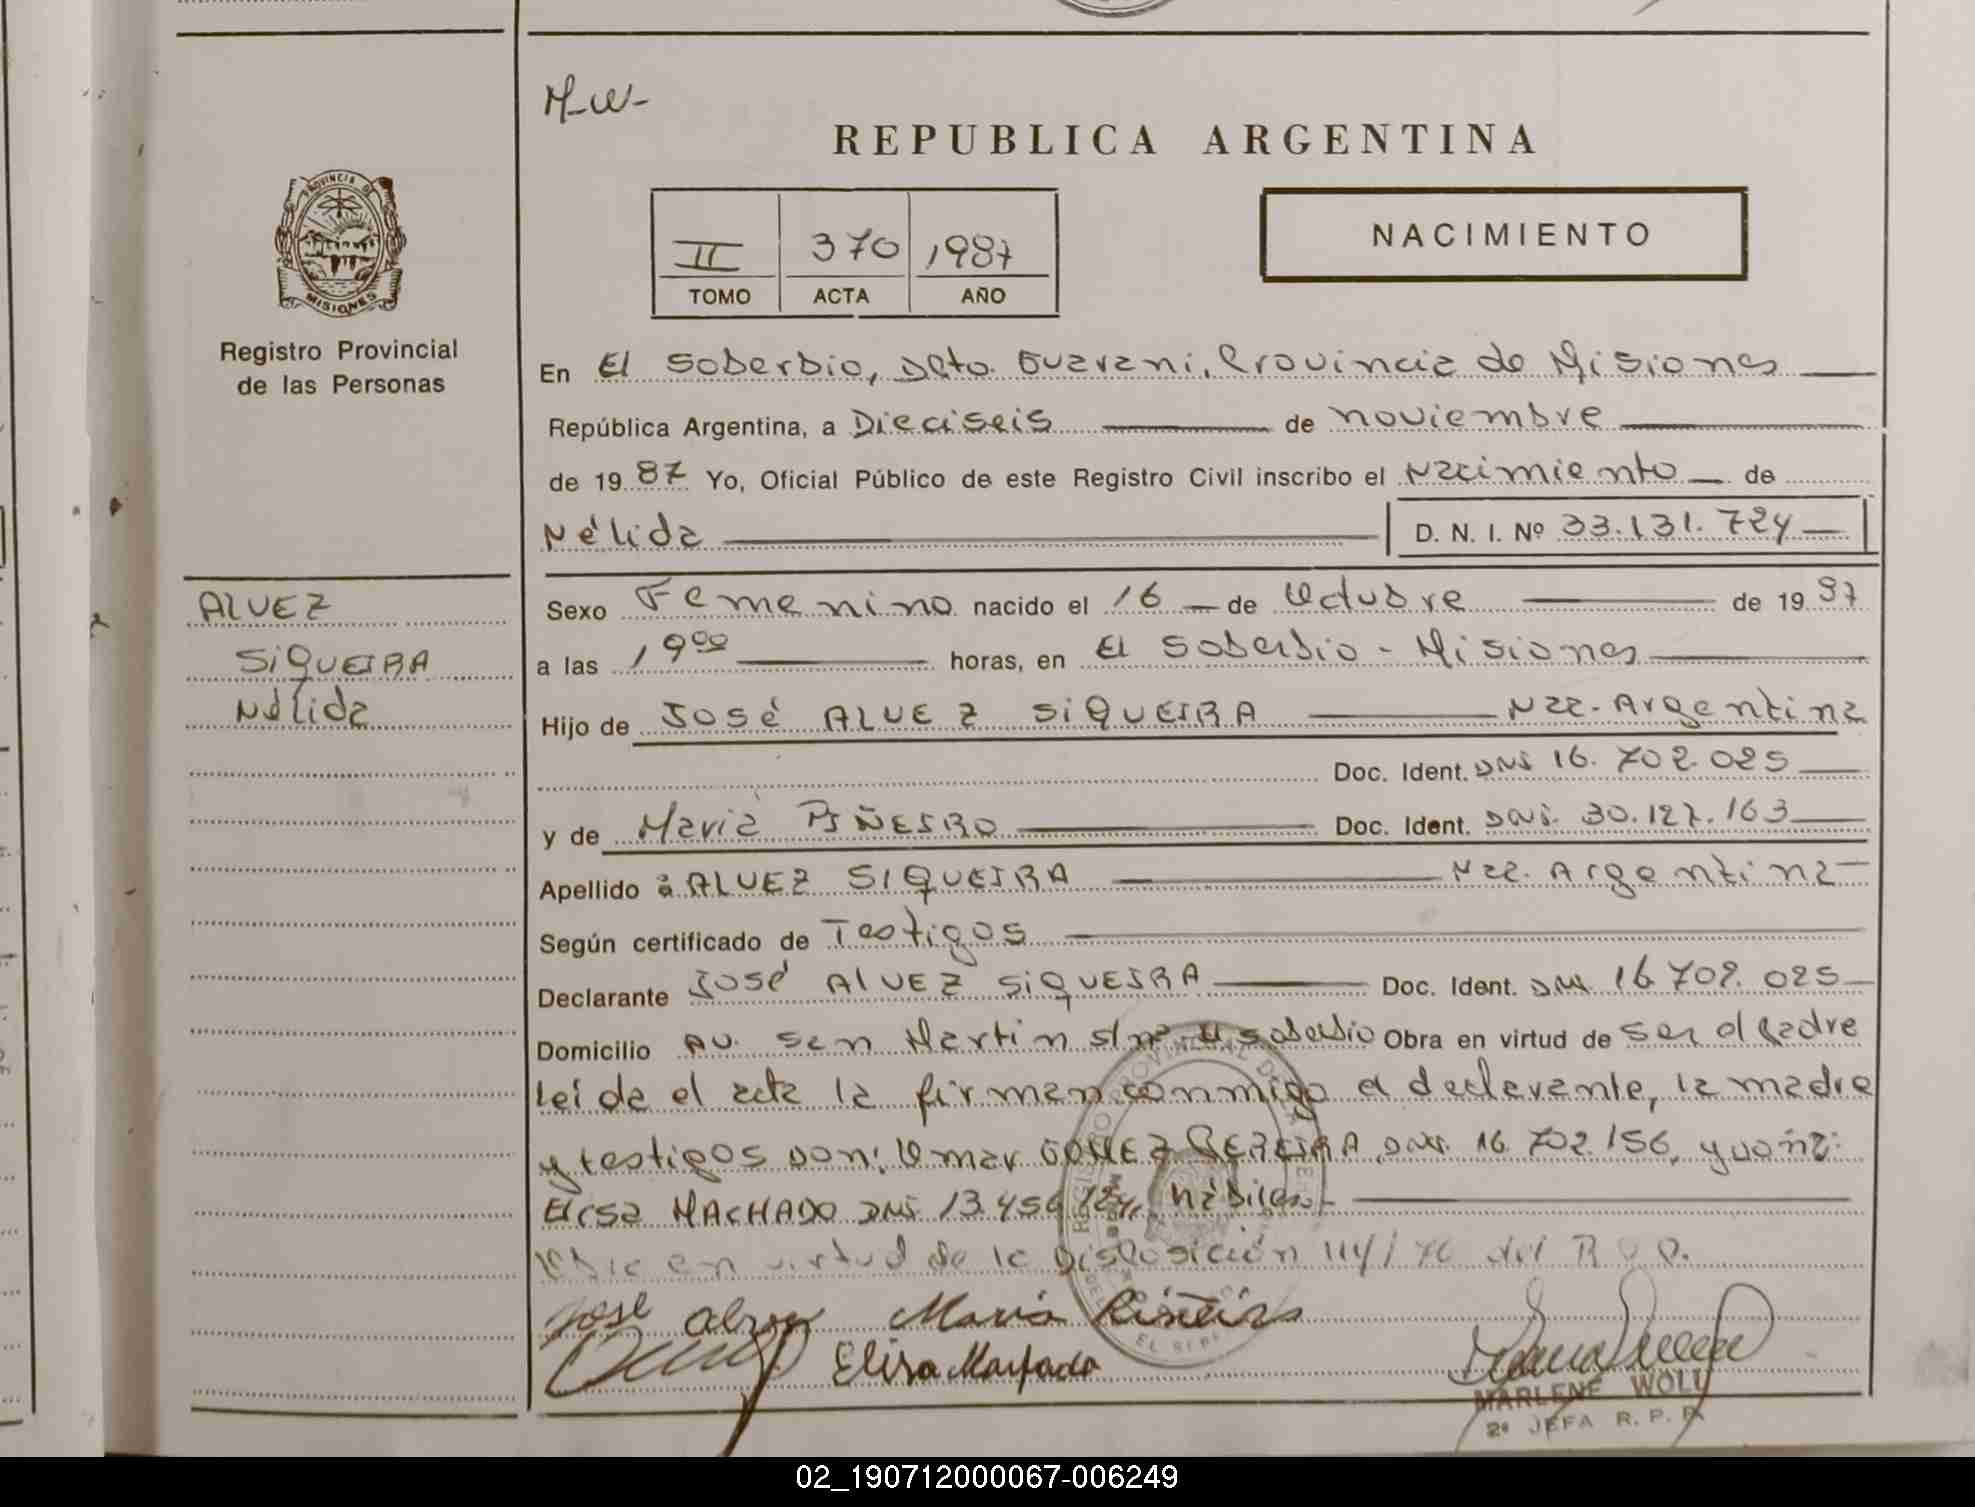 M-W-
REPUBLICA ARGENTINA
PROVINCIA DE
MISIONES
II 370 1987
TOMO ACTA AÑO
NACIMIENTO
Registro Provincial
de las Personas
En El Soberbio, Dto. Guarani, Provincia de Misiones
República Argentina, a Dieciseis de noviembre
de 19 87 Yo, Oficial Público de este Registro Civil inscribo el Nacimiento de
Nélida D. N. I. Nº 33.131.724
ALVEZ
SiQUEIRA
Nélida
Sexo Femenino nacido el 16 de Octubre de 19 87
a las 19 00 horas, en El Soberbio - Misiones
Hijo de José ALVEZ SiQUEIRA Nac. Argentina
Doc. Ident. DNI 16.702.025
y de María PIÑEIRO Doc. Ident. DNI. 30.127.163
Apellido a ALVEZ SIQUEIRA Nac. Argentina
Según certificado de Testigos
Declarante José ALVEZ SiQUEIRA Doc. Ident. DNI 16.702.025
Domicilio Av. San Martin s/nº El Soberbio Obra en virtud de ser el padre
Leída el acta la firman conmigo el declarante, la madre
y testigos don: Omar GOMEZ PEREIRA, DNI. 16.702.156, y doña:
Elisa MACHADO DNI 13.456 hábiles.-
en virtud de la Disposición del R.P.P.
José Alvez María Piñeiro
Elisa Machado
MARLENE WOLL
2ª JEFA R. P. P.
02_190712000067-006249